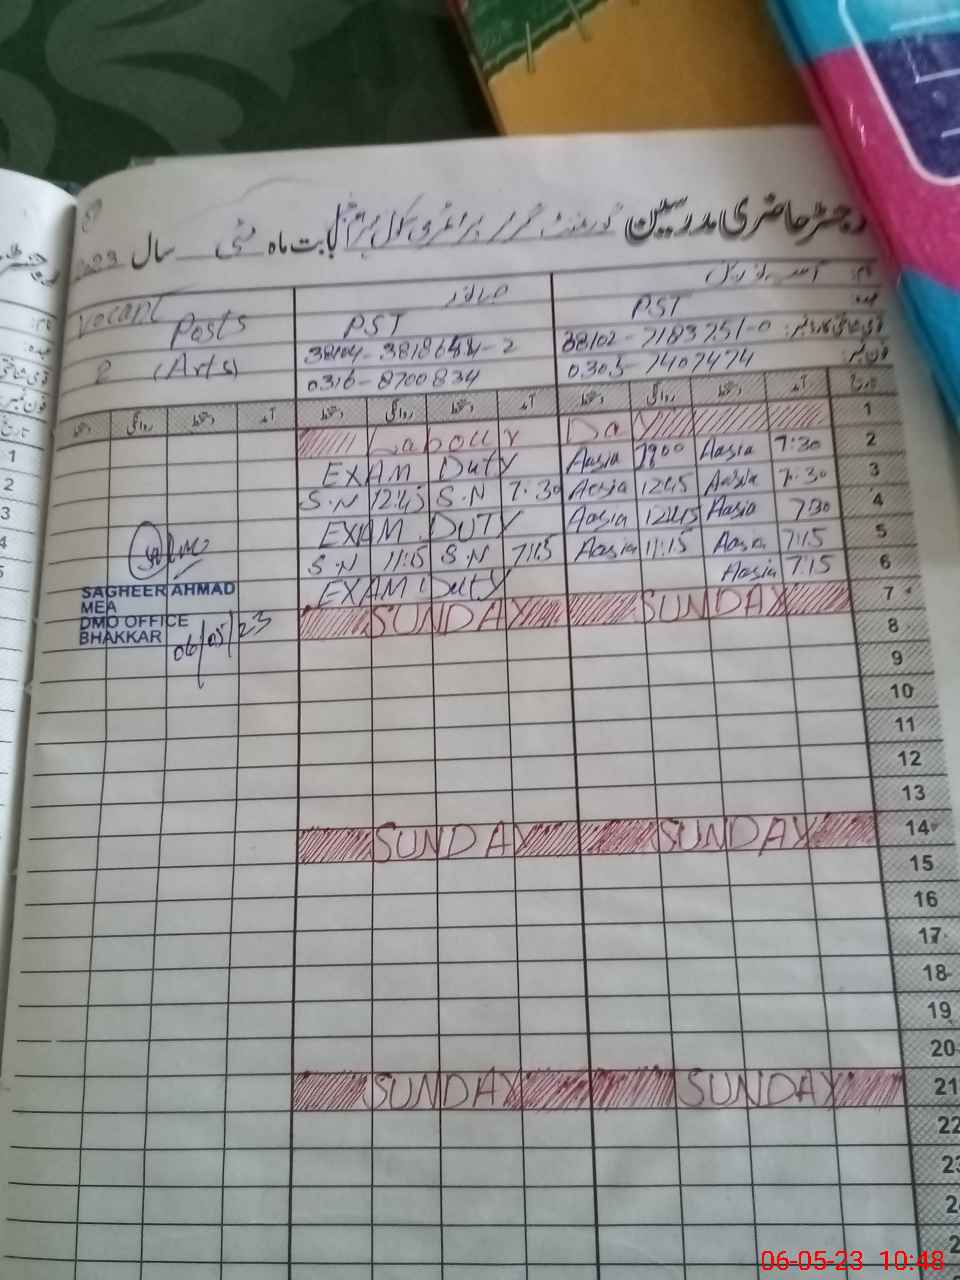 رجسٹر حاضری مدرسین گورنمنٹ گرلز پرائمری سکول بابت ماہ مئی سال 2023
PST PST Posts
38102-7183751-0
2 (Arts)
0305-7407474 0316-8700834
تاریخ آمد دستخط روانگی دستخط آمد دستخط روانگی دستخط آمد دستخط روانگی دستخط
1 Labour Day
2 7:30 Aasia Aasia EXAM Duty
3 7:30 Aasia 1245 Aasia 7:30 S.N 1245 S.N
4 7:30 Aasia 1245 Aasia EXAM DUTY
5 7:15 Aasia 11:15 Aasia 7:15 S.N 11:15 S.N
6 7:15 Aasia EXAM Duty
7 SUNDAY SUNDAY
SAGHEER AHMAD
MEA
DMO OFFICE
BHAKKAR
06/05/23
8
9
10
11
12
13
14 SUNDAY SUNDAY
15
16
17
18
19
20
21 SUNDAY SUNDAY
22
1
2
3
4
5
06-05-23 10:48